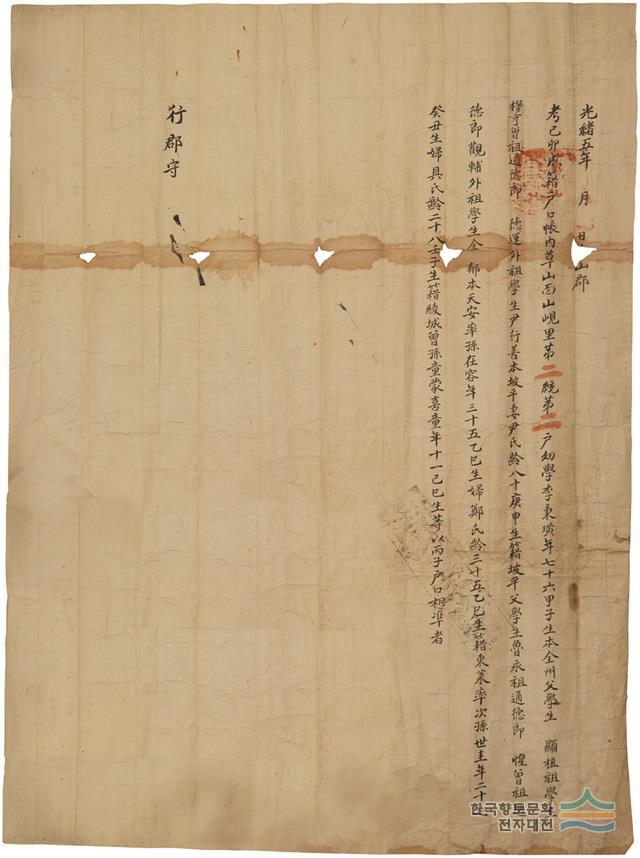 光緒五年 月 日 山郡
考己卯成籍戶口帳內草山面山峴里第二統第二戶幼學李東璜年七十六甲子生本全州父學生 顯 祖學生
穆 曾祖通德郎 德運外祖學生尹行善本坡平妻尹氏齡八十庚申生籍坡平父學生魯永祖通德郎 惺曾祖
德郎 觀輔外祖學生全 郁本天安率孫在容年三十五乙巳生婦鄭氏齡三十五乙巳生籍東萊率次孫世圭年二十
癸丑生婦具氏齡二十八壬子生籍綾城曾孫童蒙喜童年十一己巳生等以丙子戶口相準者
行郡守
한국향토문화
전자대전